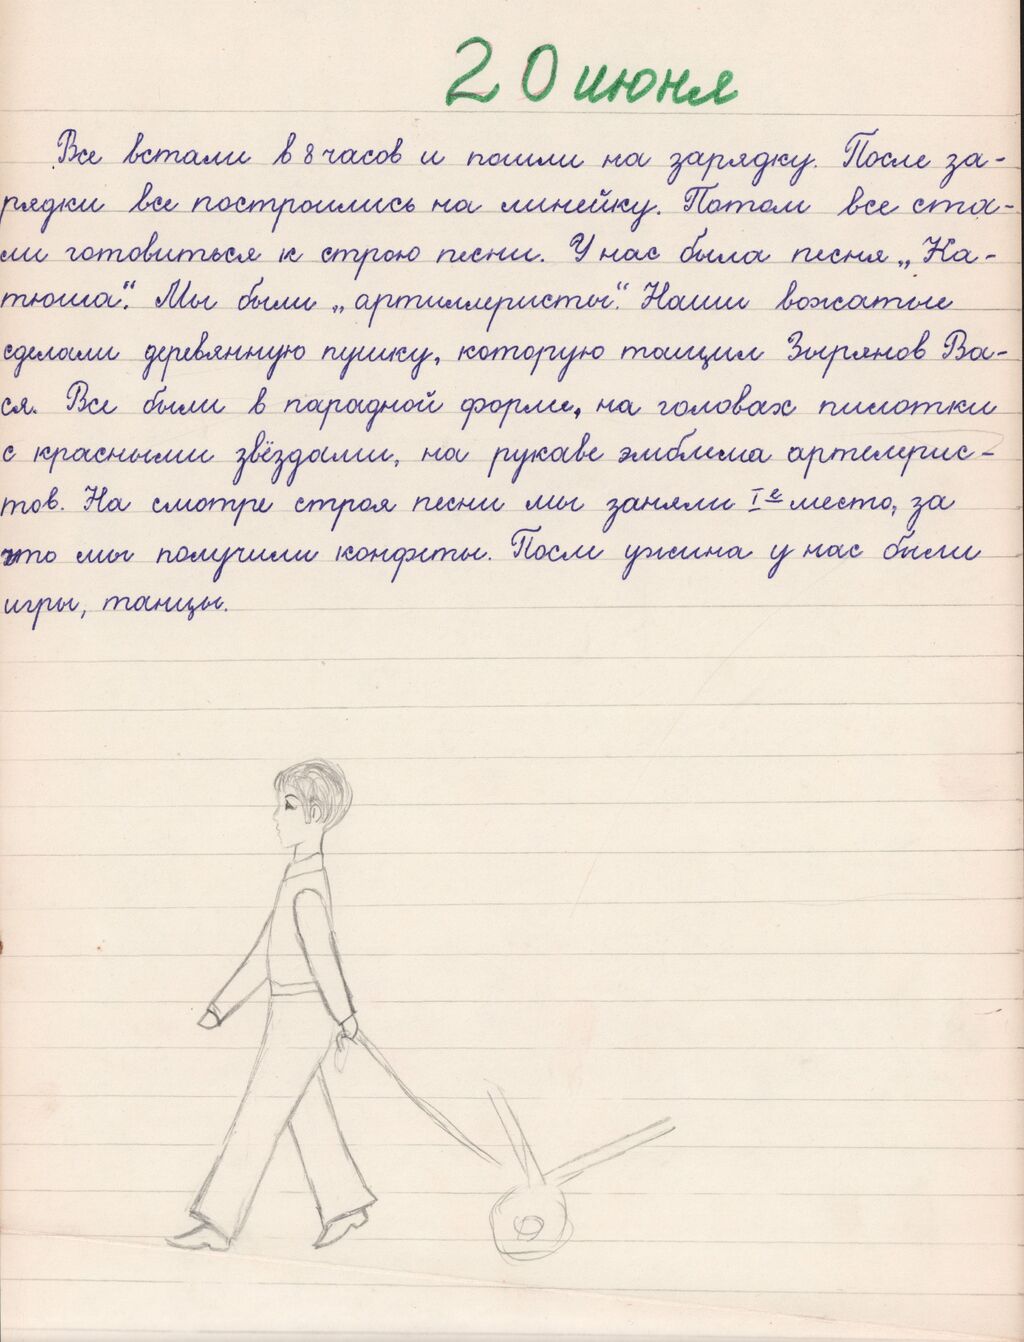 20 июня
Все встали в 8 часов и пошли на зарядку. После за-
рядки все построились на линейку. Потом все ста-
ли готовиться к строю песни. У нас была песня „Ка-
тюша". Мы были „артиллеристы". Наши вожатые
сделали деревянную пушку, которую тащил Зырянов Ва-
ся. Все были в парадной форме, на головах пилотки
с красными звёздами, на рукаве эмблема артелерис-
тов. На смотре строя песни мы заняли Iе место, за
что мы получили конфеты. После ужина у нас были
игры, танцы.